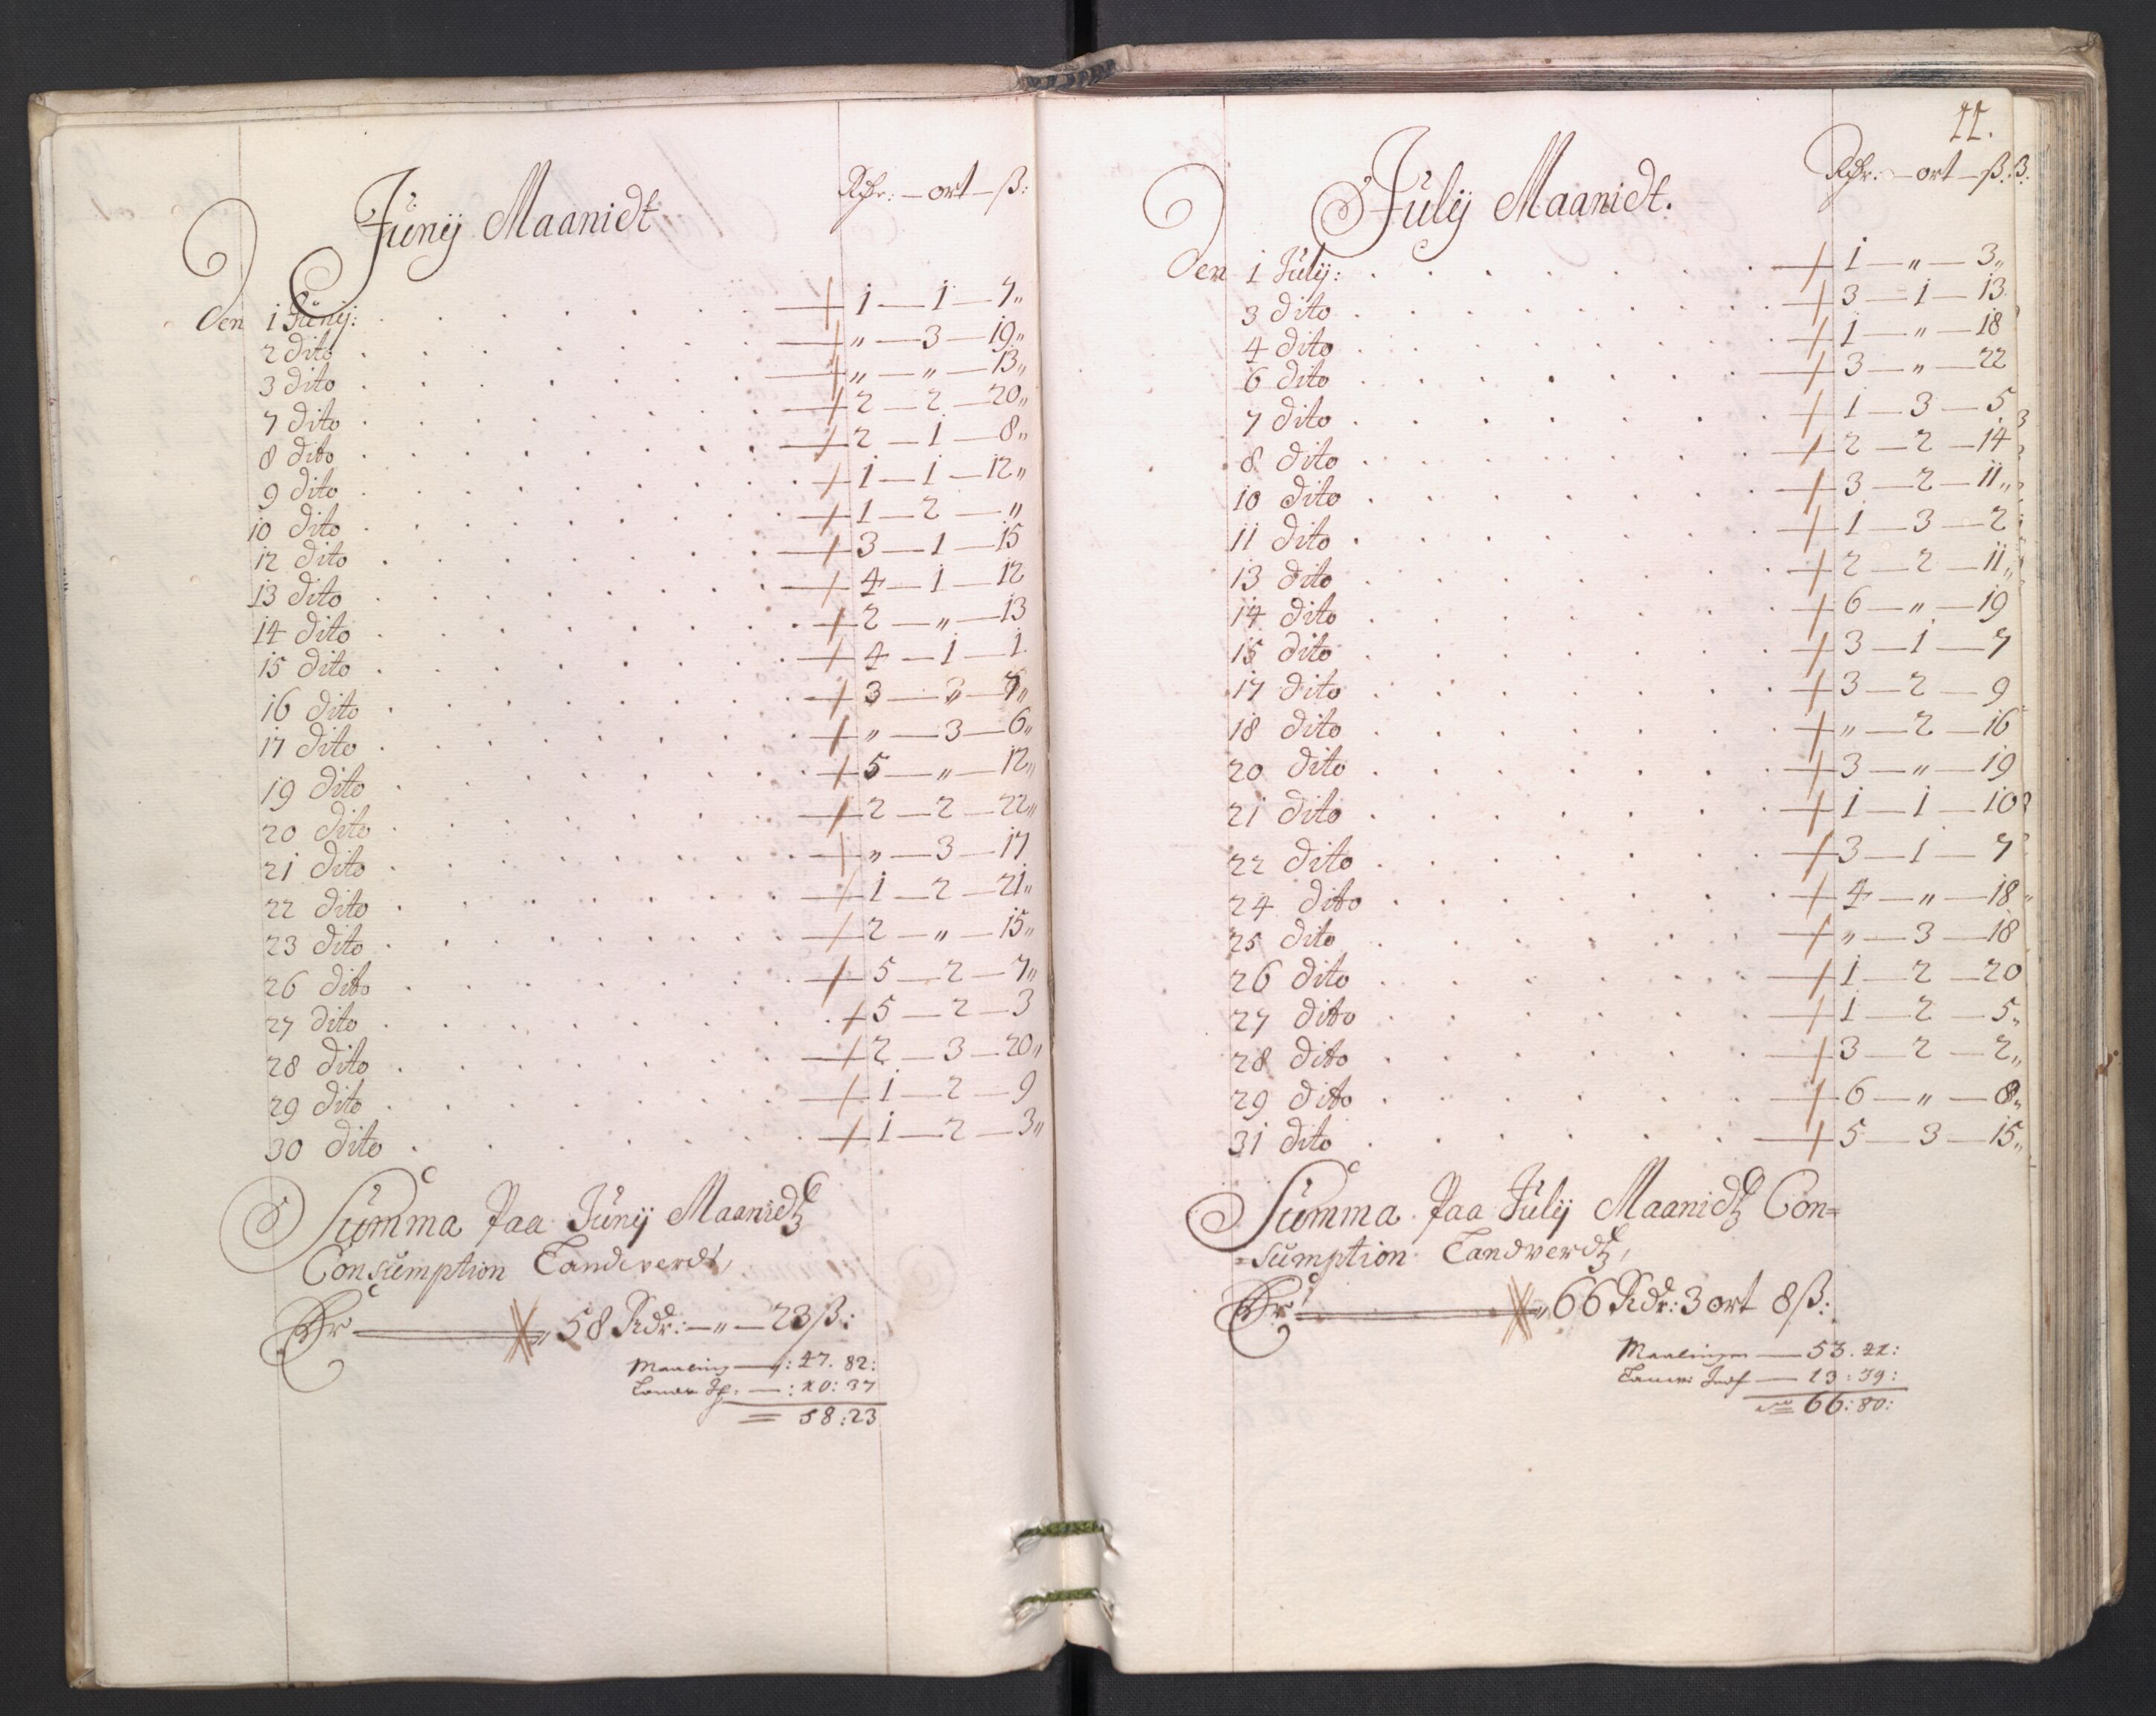 Junij Maanidt
Rdr: — ort — ß:
Den 1 Junij: 1 — 1 — 7"
2 Dito " — 3 — 19"
3 Dito " — " — 13"
7 Dito 2 — 2 — 20"
8 Dito 2 — 1 — 8"
9 Dito 1 — 1 — 12"
10 Dito 1 — 2 — "
12 Dito 3 — 1 — 15
13 Dito 4 — 1 — 12
14 Dito 2 — " — 13
15 Dito 4 — 1 — 1
16 Dito 3 — "
17 Dito " — 3 — 6"
19 Dito 5 — " — 12"
20 Dito 2 — 2 — 22"
21 Dito " — 3 — 17
22 Dito 1 — 2 — 21"
23 Dito 2 — " — 15"
26 Dito 5 — 2 — 7"
27 Dito 5 — 2 — 3
28 Dito 2 — 3 — 20"
29 Dito 1 — 2 — 9
30 Dito 1 — 2 — 3"
Summa Paa Junij Maanidtz
Consumption
58 Rdr: — " — 23 ß:
: 47. 82:
: 10: 37
= 58:23
11.
Julij Maanidt.
Rdr: — ort — ß:
Den 1 Julij: 1 — " — 3"
3 Dito 3 — 1 — 13
4 Dito 1 — " — 18
6 Dito 3 — " — 22
7 Dito 1 — 3 — 5
8 Dito 2 — 2 — 14
10 Dito 3 — 2 — 11"
11 Dito 1 — 3 — 2
13 Dito 2 — 2 — 11"
14 Dito 6 — " — 19
15 Dito 3 — 1 — 7
17 Dito 3 — 2 — 9
18 Dito " — 2 — 16
20 Dito 3 — " — 19
21 Dito 1 — 1 — 10
22 Dito 3 — 1 — 7
24 Dito 4 — " — 18
25 Dito " — 3 — 18
26 Dito 1 — 2 — 20
27 Dito 1 — 2 — 5"
28 Dito 3 — 2 — 2"
29 Dito 6 — " — 8"
31 Dito 5 — 3 — 15"
Summa Paa Julij Maanidtz Con=
=sumption
66 Rdr: 3 ort 8 ß:
— 53. 41:
— 13: 39:
66: 80: